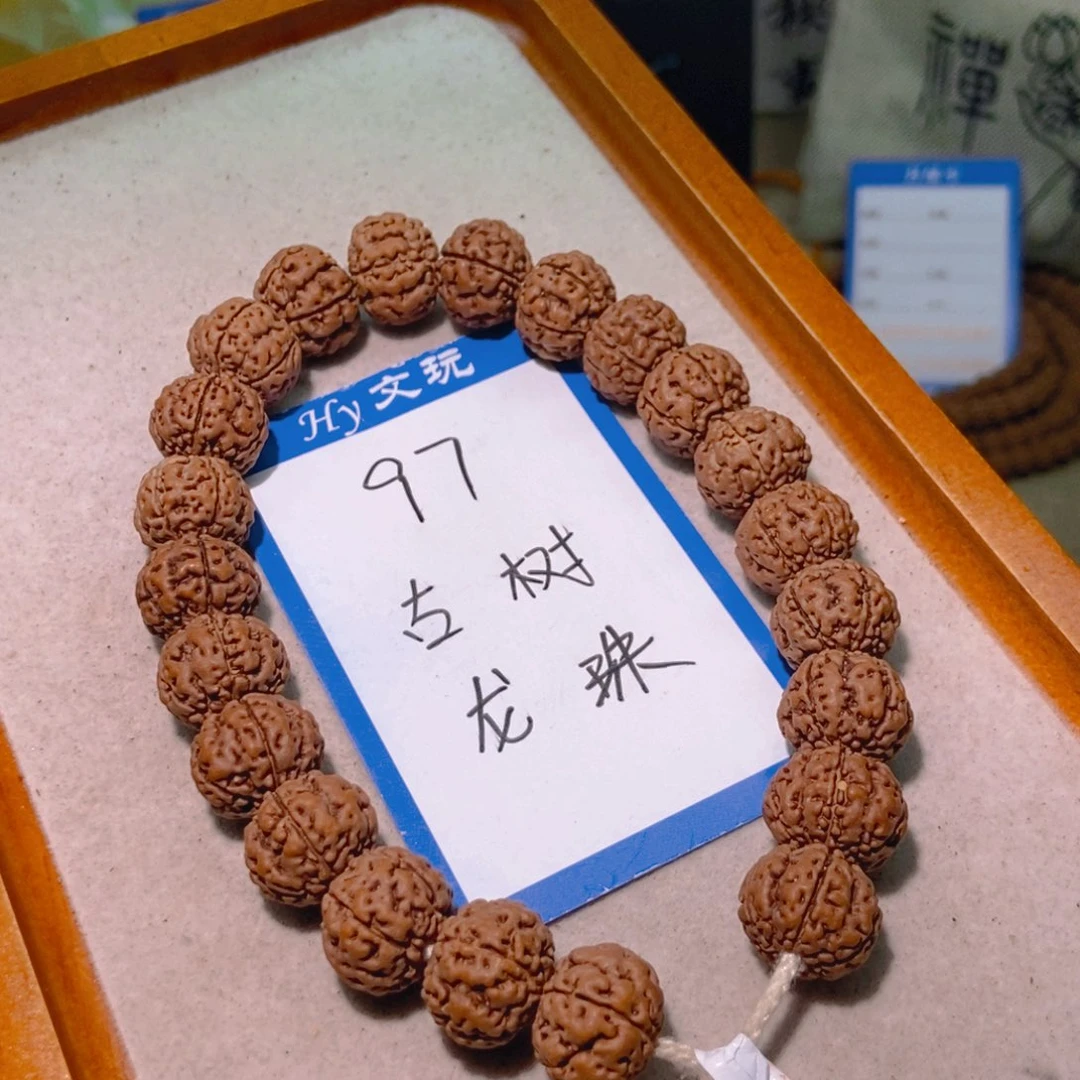 禪
Hy文玩
97
古树
龙珠